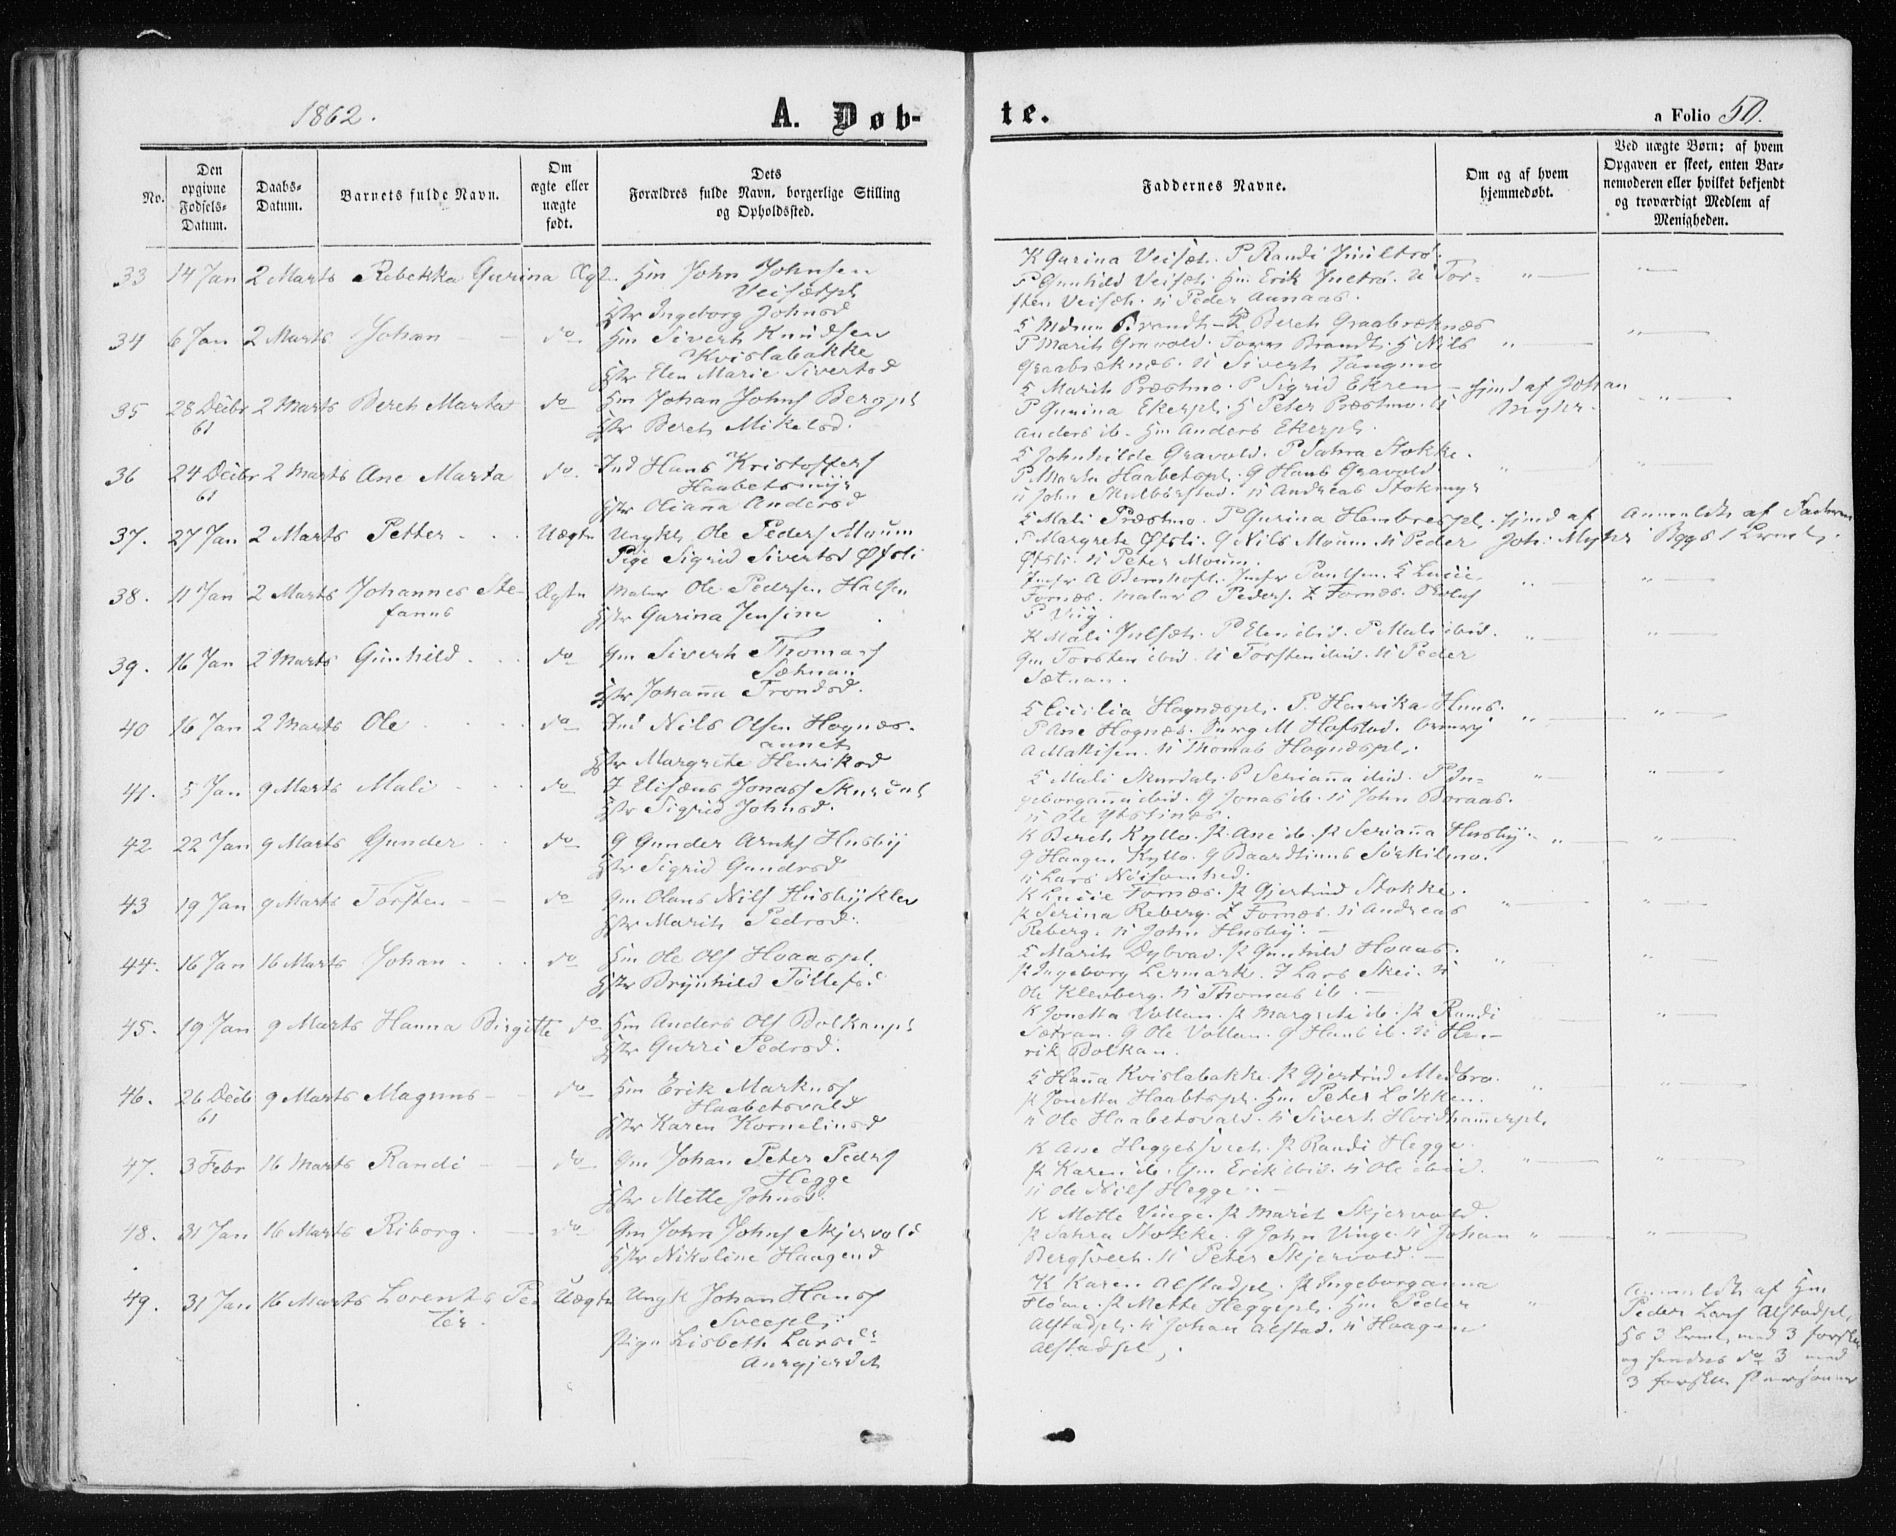 1862.
A. Døb-
te.
a Folio 50.
No.
Den
opgivne
Fødsels-
Datum.
Daabs-
Datum.
Barnets fulde Navn.
Om
ægte eller
uægte
født.
Dets
Forældres fulde Navn, borgerlige Stilling
og Opholdssted.
Faddernes Navne.
Om og af hvem
hjemmedøbt.
Ved uægte Børn: af hvem
Opgaven er skeet, enten Bar-
nemoderen eller hvilket bekjendt
og troværdigt Medlem af
Menigheden.
33 14 Jan 2 Marts Rebekka Gurina Ægt. Hm John Johnsen
Veisætpl
Hstr Ingeborg Johnsd
K Gurina Veisæt. P Randi
P Gunhild Veisæt. Hm Erik U Tor-
sten Veisæt. U Peder Aunaas.
34 6 Jan 2 Marts Johan do Hm Sivert Knudsen
Kvislabakke
Hstr Elen Marie Sivertsd
Brandt P Beret Graabræknæs
P Marit Gravold. Brandt. G Nils
Graabræknæs. U Sivert Tangmo
35 28 Decbr 2 Marts Beret Marta do Hm Johan Johns Bergpl
61
Hstr Beret Mikelsd.
K Marit Præstmo. P Sigrid Ekren hjmd af Johan
P Gurina Ekerpl. G Peter Præstmo. U Myhr.
Anders ib. Hm Anders Ekerpl.
36 24 Decbr 2 Marts Ane Marta do. Ind Hans Kristoffers
61
Haabetsmyr
Hstr Olianna Andersd
K Johnhilde Gravold. P Sahra Stokke.
P Marta Haabetspl. G Hans Gravold
U John Skulbørstad. U Andreas Stokmyr
37. 27 Jan 2 Marts Petter Uægte Ungkl Ole Peders Moum
Pige Sigrid Sivertsd Øfsti
K Mali Præstmo. P Gurina Hembrespl. hjmd af Anmeldt af Faderen
P Margrete Øfsti. G Nils Moum. U Peder Joh: Myhr
Øfsti. U Peter Moum.
38. 11 Jan 2 Marts Johannes Ste- Ægte Maler Ole Pedersen Halsen
fanus
Hstr Gurina Jensine
Jmfr A Bernhoft. Jmfr Paulsen. K Lucie
Fornæs. Maler O Peders. L Fornæs.
P Viig.
39. 16 Jan 2 Marts Gunhild do Gm Sivert Thomass
Sætnan
Hstr Johanna Trondsd.
K Mali Julsæt. P Elen ibid. P Mali ibid.
Gm Torsten ibid. U Torsten ibid. U Peder
Sætnan.
40 16 Jan 2 Marts Ole do Ind Nils Olsen Hognæs-
annet
Hstr Margrete Henriksd
K Cicilia Hognæspl. P. Henrika Huus.
P Ane Hognæs. M Hofstad.
A Matisen. U Thomas Hognæspl.
41. 5 Jan 9 Marts Mali do I Elisæus Jonass Skurdal
Hstr Sigrid Johnsd.
K Mali Skurdal. P Serianna ibid. P In-
geborganna ibid. G Jonas ib. U John Boraas.
U Ole Ystines.
42 22 Jan 9 Marts Gunder do G Gunder Arnts Husby
Hstr Sigrid Gundersd
K Beret Kyllo. P Ane ib. P Serianna Husby.
G Haagen Kyllo. G Baardtinus Sørkilmo.
U Lars Nøisomhed.
43 19 Jan 9 Marts Torsten do Gm Olaus Nils Husbyklev
Hstr Marit Pedersd.
K Lucie Fornæs. P Gjertrud Stokke.
P Serina Reberg. L Fornæs. U Andreas
Reberg. U John Husby.
44. 16 Jan 16 Marts Johan do Hm Ole Ols Hoaaspl.
Hstr Brynhild Tollefsd
K Marit Dybvad. P Gunhild Hoaas.
P Ingeborg Lermark. I Lars Skei. U
Ole Klevberg. U Thomas ib.
45. 19 Jan 9 Marts Hanna Birgitte do Hm Anders Ols Bolkanpl
Hstr Gurri Pedersd.
K Jonetta Vollan. P Margrete ib. P Randi
Sætran. G Ole Vollan. G Hans ib. U Hen-
rik Bolkan.
46. 26 Decb 9 Marts Magnus do Hm Erik Markuss
61
Haabetsvald
Hstr Karen Korneliusd
K Hanna Kvislabakke. P Gjertrud Medbro.
P Jonetta Haabtspl. Hm Peter Løkken.
U Ole Haabetsvald. U Sivert Hvidhammerpl.
47. 3 Febr 16 Marts Randi do Gm Johan Peter Peders
Hegge
Hstr Mette Johnsd.
K Ane Heggesveet. P Randi Hegge.
P Karen ib. Gm Erik ibid. U Ole ibid.
U Ole Nils Hegge.
48. 31 Jan 16 Marts Riborg. do Gm John Johns Skjervold
Hstr Nikoline Haagend
K Mette Vinge. P Marit Skjervold.
P Sahra Stokke. G John Vinge. U Johan
Bergsveet. U Peter Skjervold.
49. 31 Jan 16 Marts Lorents Pe Uægte Ungk Johan Hanss
ter.
Sveepl.
Pige Lisbeth Larsdr
Aurgjerdet
K Karen Alstadpl. P Ingeborganna
Floan. P Mette Heggepl. Hm Peder
Alstadpl. U Johan Alstad. U Haagen
Alstadpl.
Anmeldt af Hm
Peder Lars Alstadpl,
3 med 3 forskl
og 3 med
3 forskl Personer